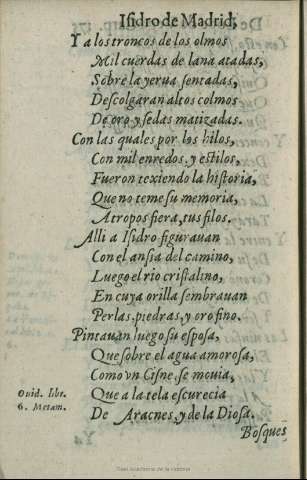 Isidro de Madrid,
Y a los troncos de los olmos
Mil cuerdas de lana atadas,
Sobre la yerua sentadas,
Descolgaran altos colmos
De oro y sedas matizadas.
Con las quales por los hilos,
Con mil enredos, y estilos,
Fueron texiendo la historia,
Que no teme su memoria,
Atropos fiera, tus filos.
Alli a Isidro figurauan
Con el ansia del camino,
Luego el rio cristalino,
En cuya orilla sembrauan
Perlas, piedras, y oro fino.
Pintauan luego su esposa,
Que sobre el agua amorosa,
Como vn Cisne, se mouia,
Que a la tela escurecia
Ouid. libr.
6. Metam.
De Aracnes, y de la Diosa.
Bosques
Real Academia de la Historia